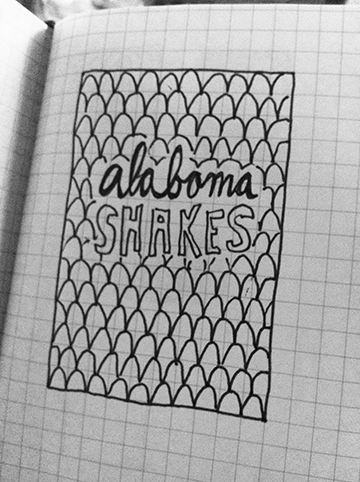 alabama
SHAKES